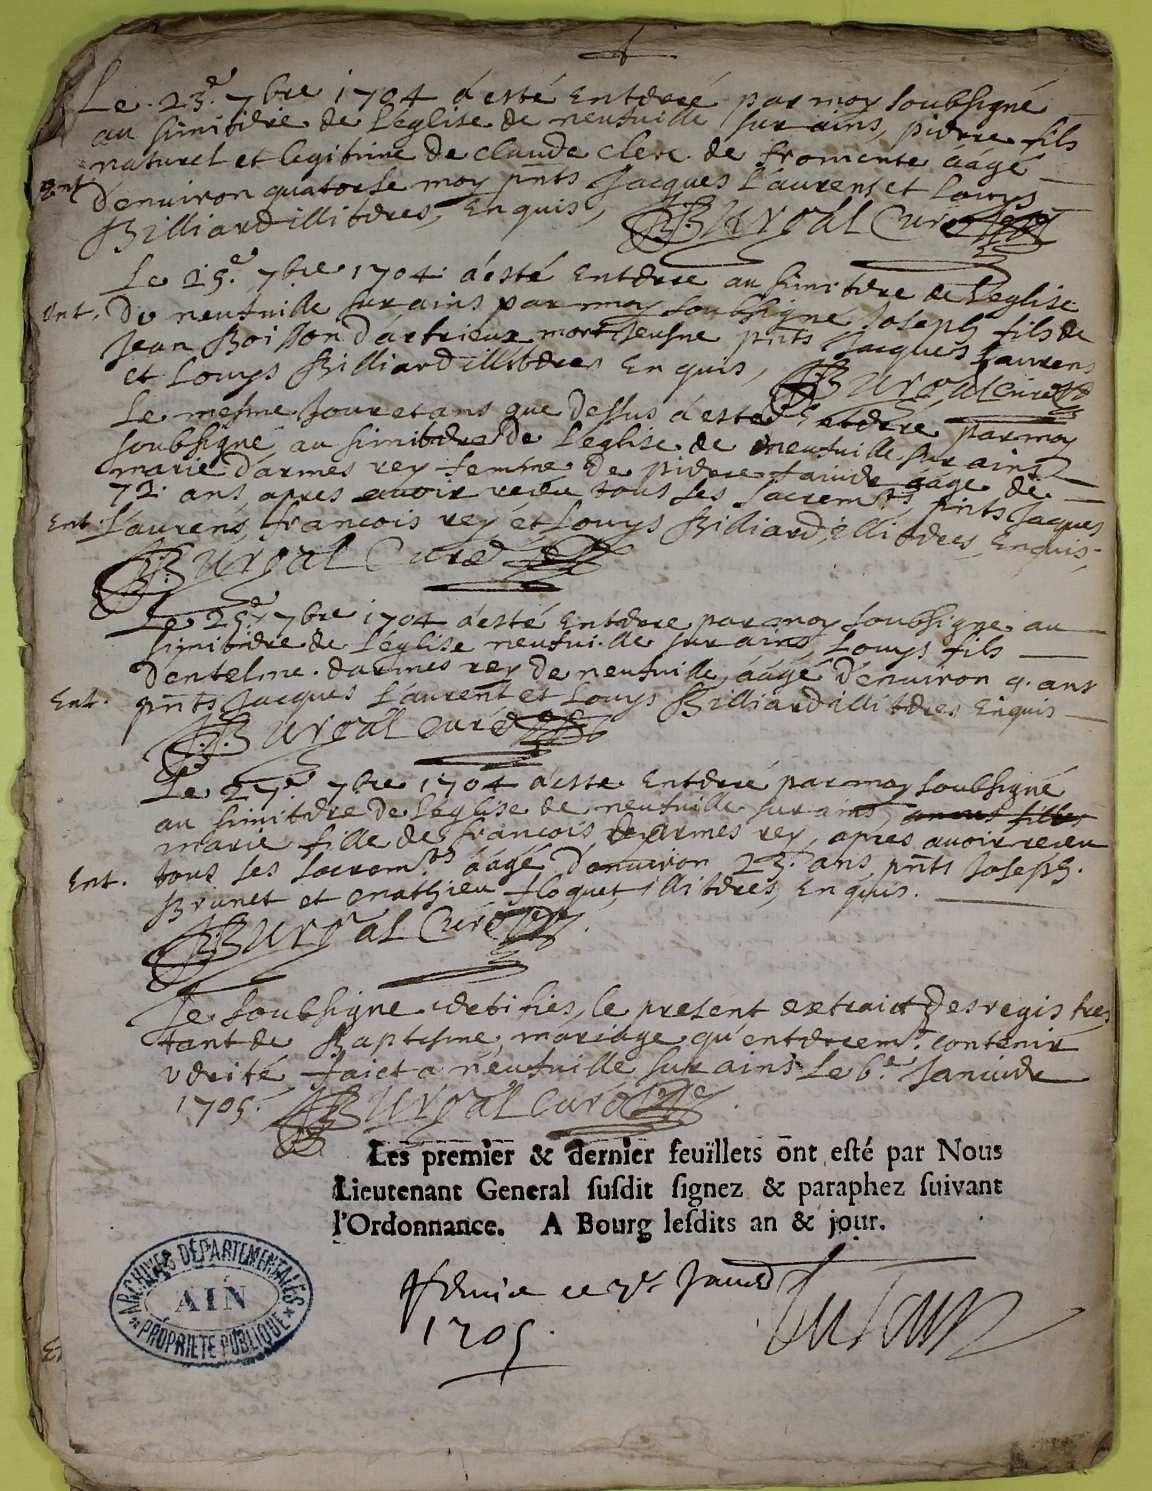 Le 23.e 7bre 1704 a esté Enterré par moy Soubsigné
au simitiere de L'eglise de neufuille sur ains, pierre fils
naturel et legitime de claude clerc de fromente áagé
Ent d'enuiron quatorse moy pnts Jacques Laurent et Louys
Billiard illiteres, Enquis, Burgal Curé
Le 25.e 7bre 1704 a esté Enterré au simitiere de L'eglise
Ent. De neufuille sur ains par moy soubsigné Joseph fils de
Jean Boisson d'artrieux mort Jeusne pnts Jacques Laurens
et Louys Billiard illiteres Enquis, Burgal curé
Le mesme Jour et ans que Dessus a esté Enterré par moy
soubsigné au simitiere De L'eglise de neufuille sur ains
marie d'armes rey femme De pierre áage de
72. ans apres auoir receu tous Les Sacremts, pnts Jaques
Ent. Laurens, francois rey et Louys Billiard, illiteres Enquis,
Burgal Curé
Le 25.e 7bre 1704 a esté Enterré par moy Soubsigné au
simitiere de L'eglise neufuille sur ains, Louys fils
D'entelme darmes rey De neufuille, áagé D'enuiron 9. ans
Ent. pnts Jacques Laurent et Louys Billiard illiteres Enquis
Burgal curé
Le 27e 7bre 1704 a esté Enterré par moy soubsigné
au simitiere De L'eglise de neufuille sur ains
marie fille de francois Darmes rey, apres auoir receu
Ent. tous Les Sacrem.ts áagé D'enuiron 23. ans, pnts Joseph.
Brunet et mathieu floquet, illiteres, Enquis.
Burgal Curé
Je soubsigné certifies le present extraict Des registres
tant de Baptesme, mariage qu'enterrem.t contenir
verité, faict a neufuille sur ains Le 6.e Januier
1705. Burgal Curé
Les premier & dernier feuïllets ont esté par Nous
Lieutenant General susdit signez & paraphez suivant
l'Ordonnance. A Bourg lesdits an & jour.
ce 7e Januier
1705.
ARCHIVES DÉPARTEMENTALES
AIN
PROPRIÉTÉ PUBLIQUE